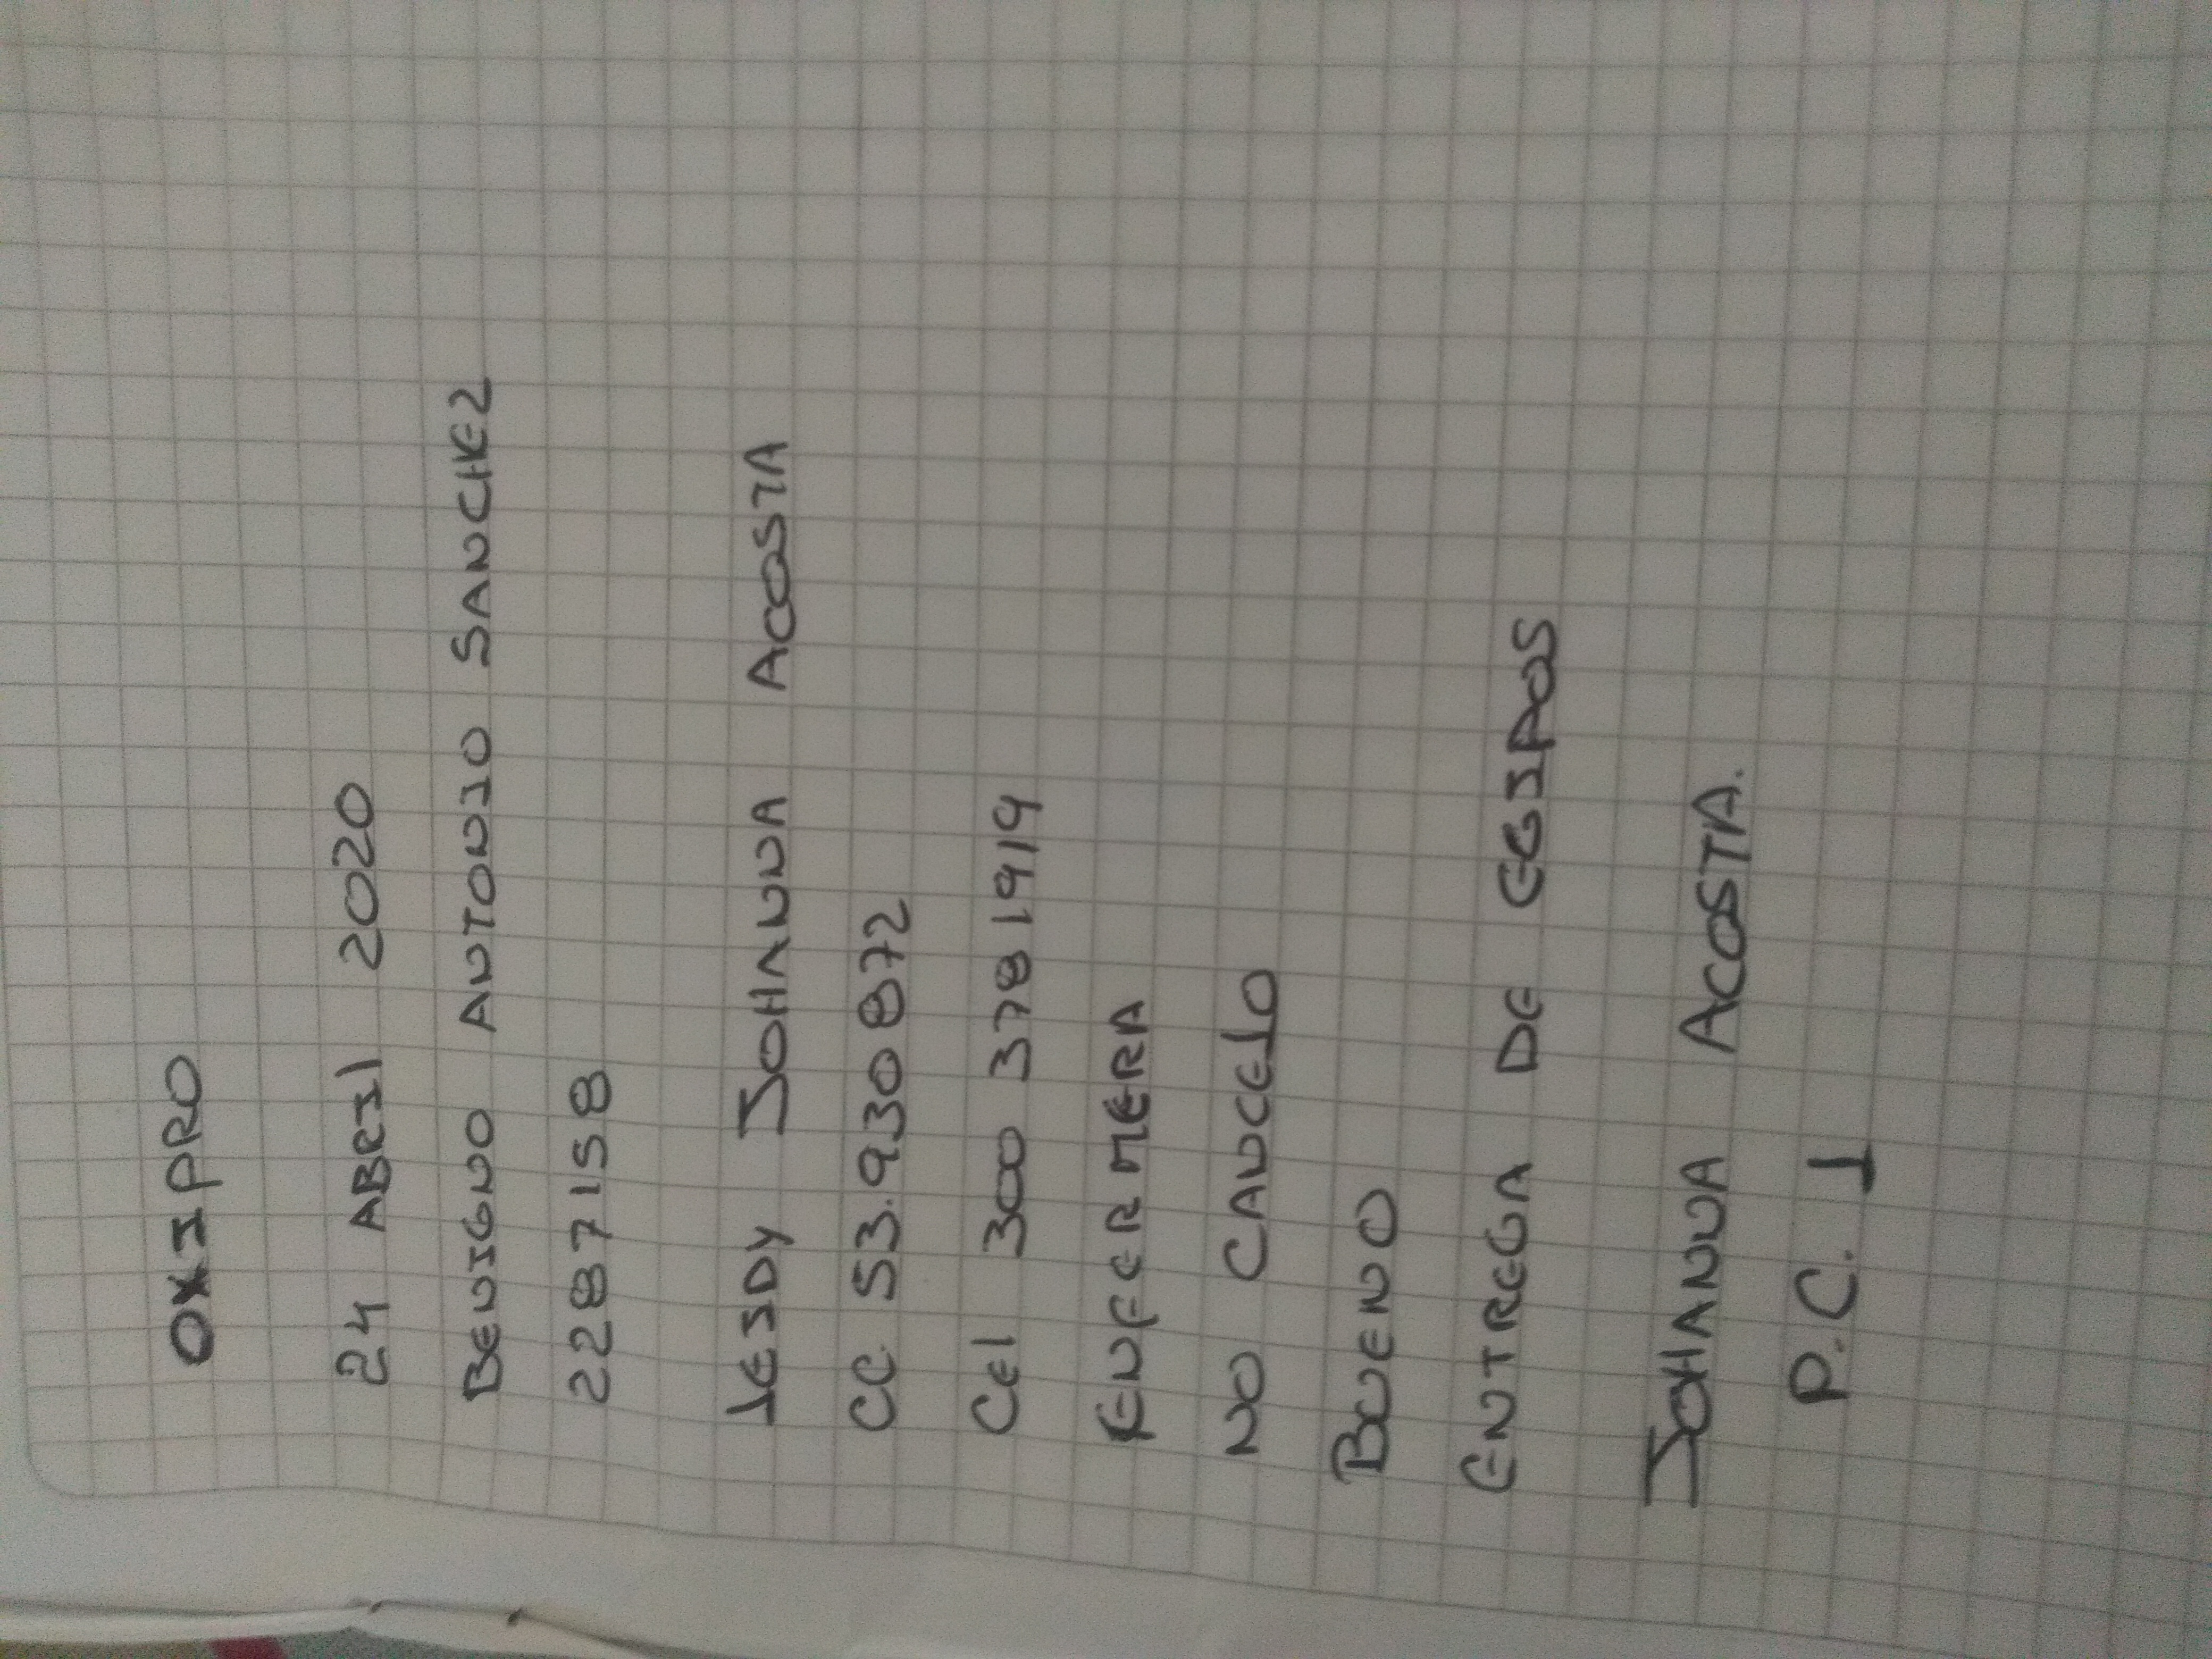 OXIPRO
24 ABRIL 2020
BENIGNO ANTONIO SANCHEZ
2287158
LEIDY JOHANNA ACOSTA
CC 53.930872
Cel 300 3781919
ENFERMERA
NO CANCELO
BUENO
ENTREGA DE EQIPOS
JOHANNA ACOSTA.
P.C. I